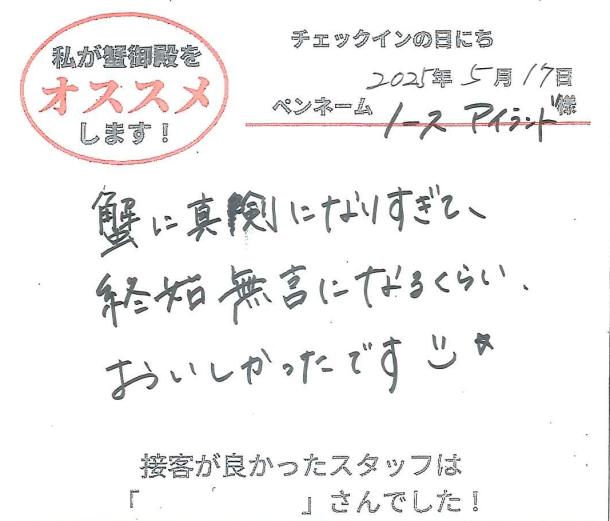 私が蟹御殿を
オススメ
します！
チェックインの日にち
2025年 5月 17日
ペンネーム ノース アイランド様
蟹に真剣になりすぎて、
終始無言になるくらい、
おいしかったです
接客が良かったスタッフは
「　　　　　」さんでした！